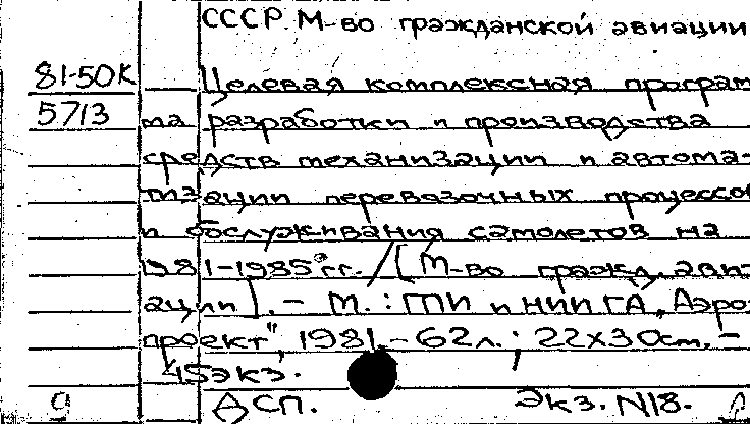 СССР. М-во гражданской авиации
81-50К Целевая комплексная програм
5713 ма разработки и производства
средств механизации и автома-
тизации перевозочных процессо
и обслуживания самолетов на
1981-1985 гг. / [М-во гражд. ави
ации]. – М. : ГПИ и НИИ ГА „Аэро
проект", 1981. – 62л. ; 22х30см. –
45экз.
ДСП. Экз. N18.